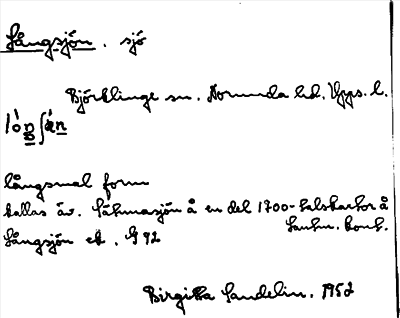 Långsjön. sjö
Björklinge sn. Norunda hd. Upps. l.
långsmal form
kallas äv. Såhmasjön å en del 1700-talskartor å
Lantm. kont.
Långsjön ek. G 92
Birgitta Sandelin. 1952